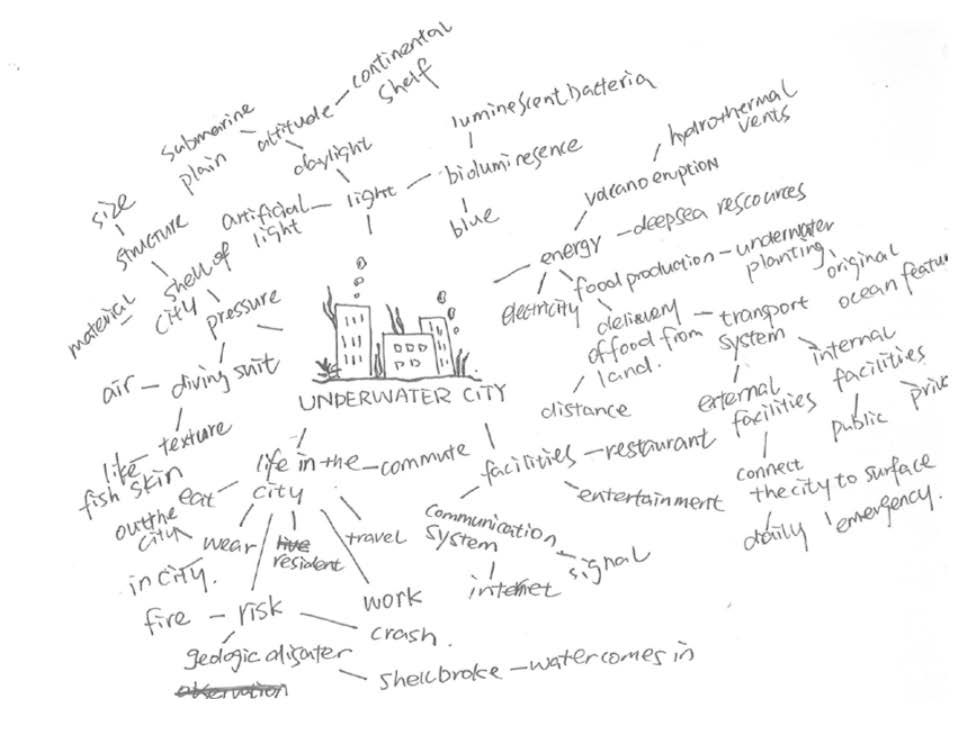 continental
shelf
submarine
plain
altitude
daylight
luminescent bacteria
bioluminesence
blue
hydrothermal
vents
volcano eruption
size
structure
material
artificial
light
light
shell of
city
pressure
energy
deepsea rescources
food production
underwater
planting
electricity
delivery
of food from
land.
transport
system
original
ocean featu
distance
external
facilities
internal
facilities
public
priva
air
diving suit
texture
like
fish skin
UNDERWATER CITY
life in the
city
commute
facilities
restaurant
entertainment
connect
the city to surface
daily
emergency.
eat
out the
city
wear
in city.
live
resident
travel
communication
system
signal
internet
work
fire
risk
crash.
geologic alisater
observation
shell broke
water comes in